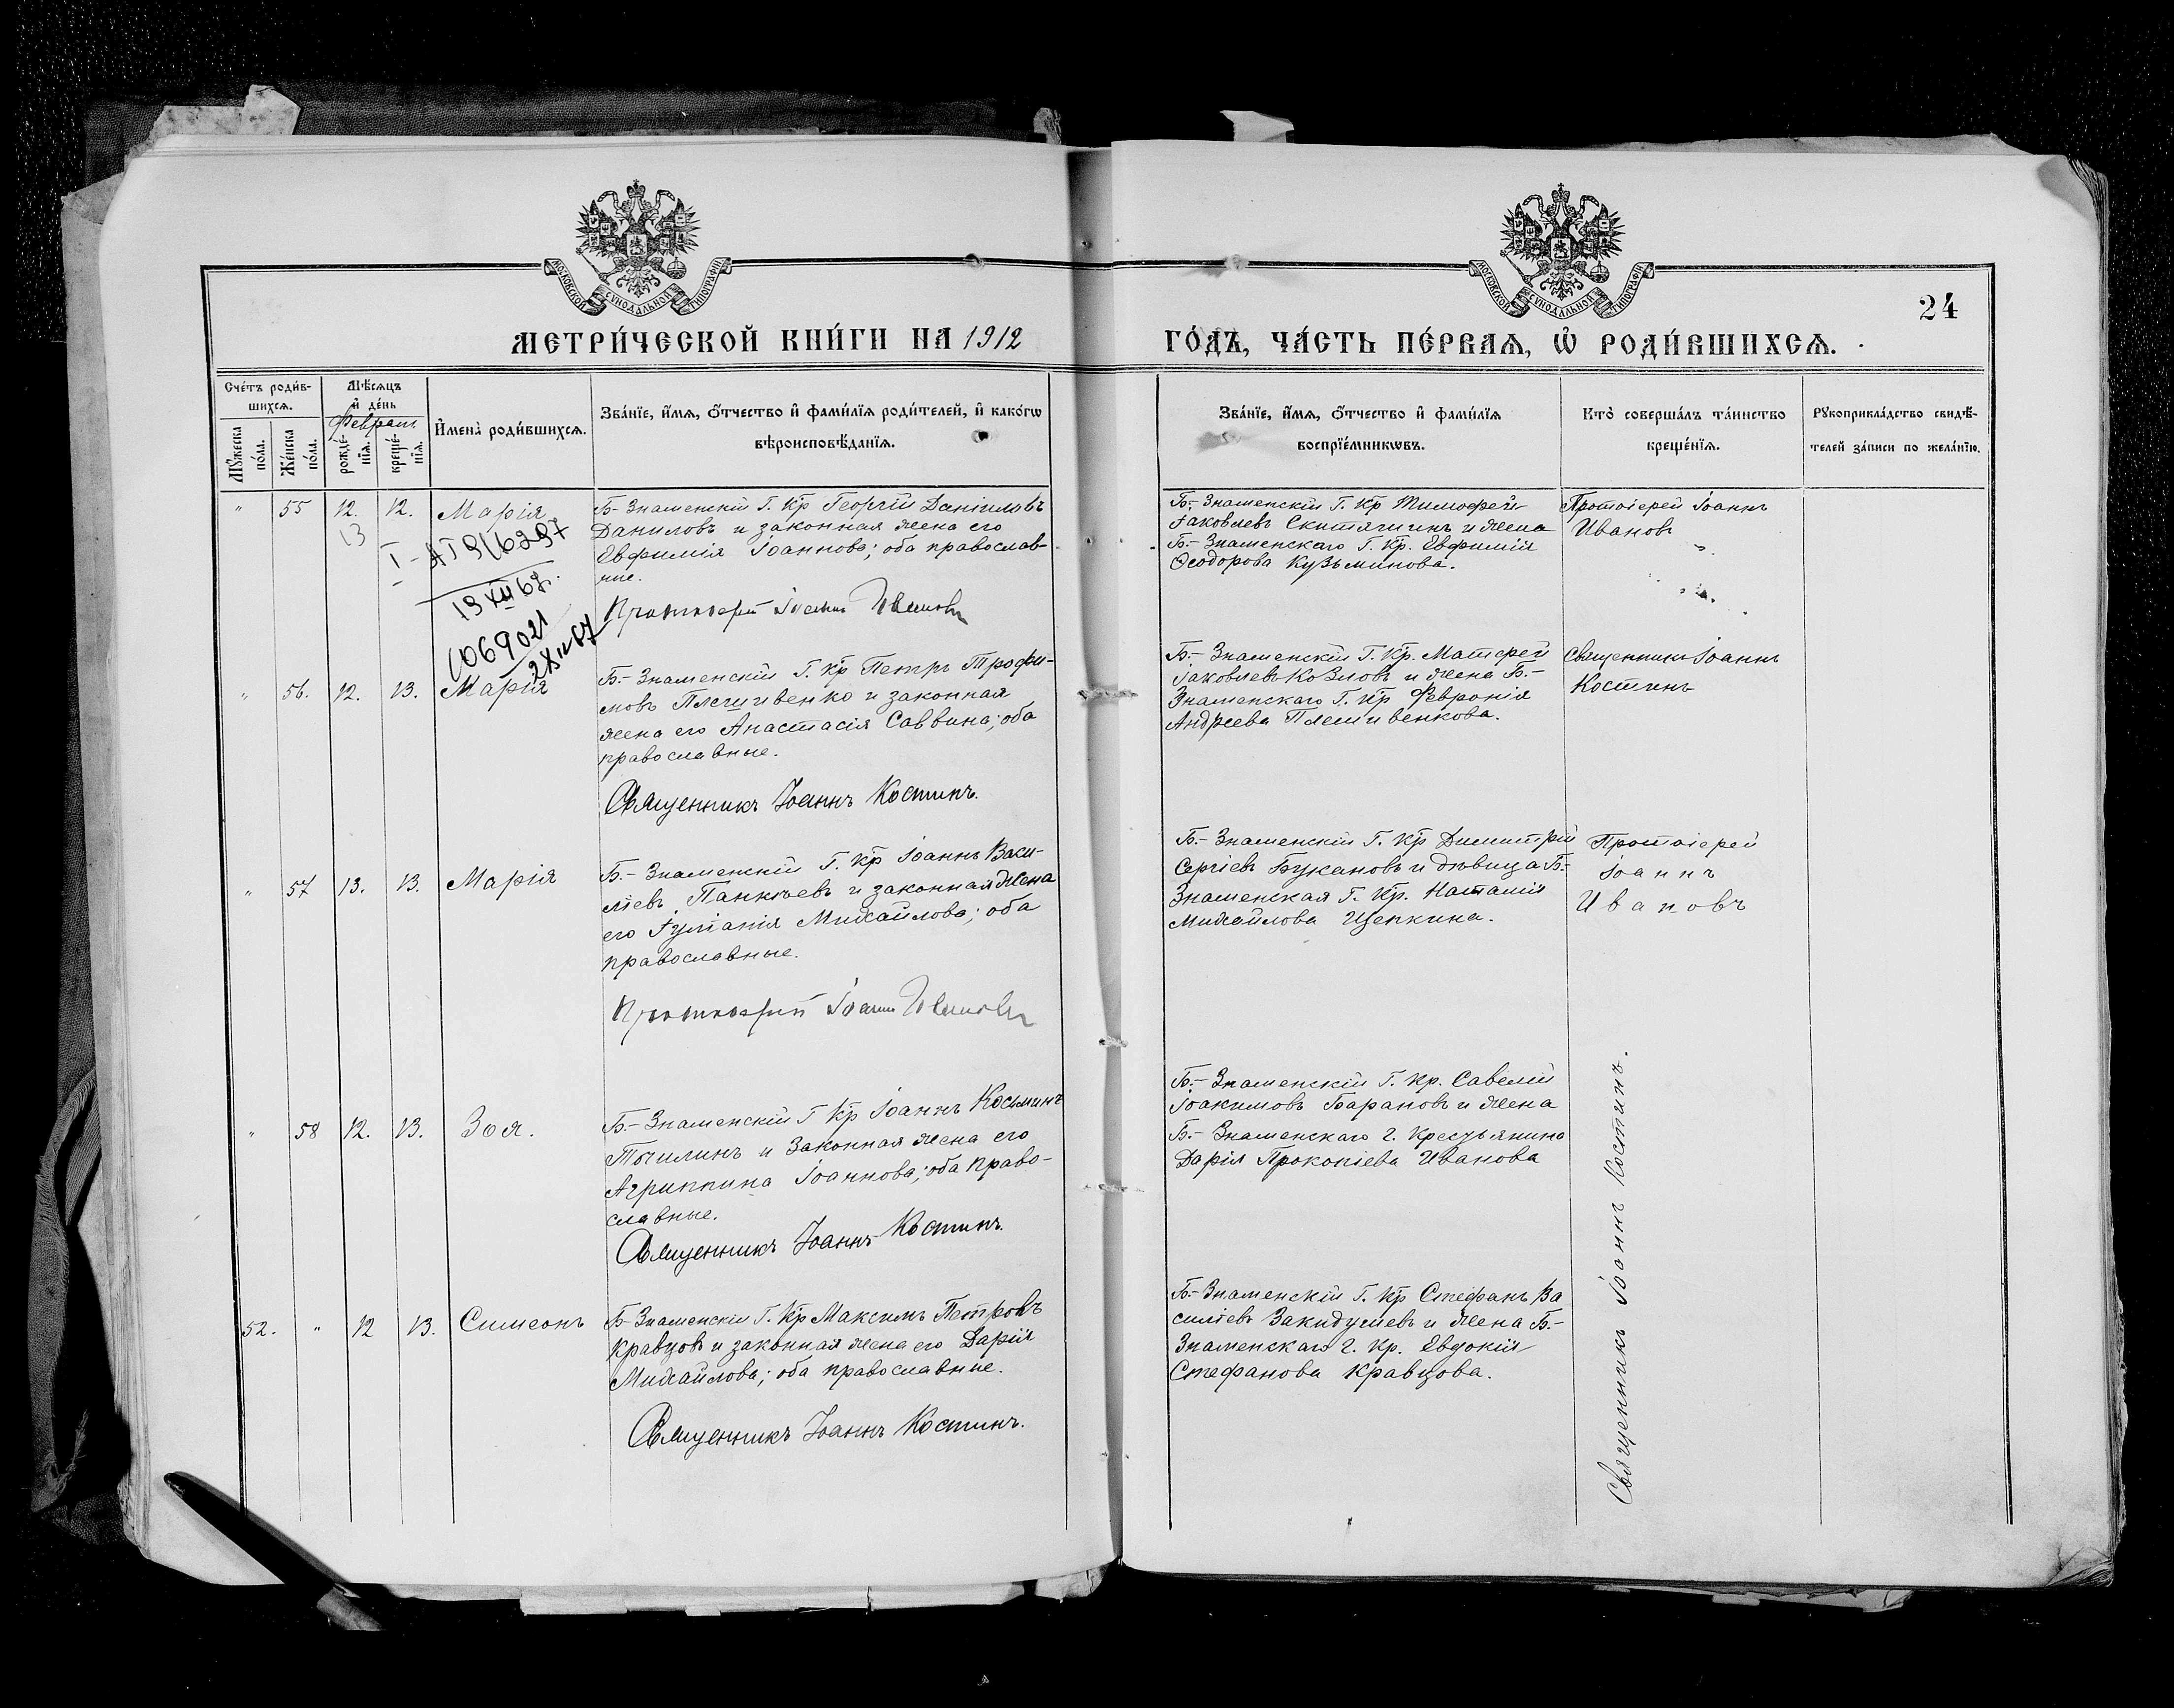 МОСКОВСКОЙ СѴНОДАЛЬНОЙ ТИПОГРАФІИ
МОСКОВСКОЙ СѴНОДАЛЬНОЙ ТИПОГРАФІИ
24
МЕТРИ́ЧЕСКОЙ КНИ́ГИ НА 1912
ГО́ДЪ, ЧА́СТЬ ПЕ́РВАѦ, Ѡ҆ РОДИ́ВШИХСѦ.
Сче́тъ роди́в-
шихсѧ.
Мѣ́сѧцъ
и҆ де́нь
Февраль
Мꙋ́жеска
по́ла.
Же́нска
по́ла.
рожде́-
нїѧ.
креще́-
нїѧ.
И҆мена̀ роди́вшихсѧ.
Зва́нїе, и҆́мѧ, ѻ҆́тчество и҆ фами́лїѧ роди́телей, и҆ како́гѡ
вѣроисповѣ́данїѧ.
Зва́нїе, и҆́мѧ, ѻ҆́тчество и҆ фами́лїѧ
воспрїе́мникѡвъ.
Кто̀ соверша́лъ та́инство
креще́нїѧ.
Рꙋкоприкла́дство свидѣ́-
телей за́писи по жела́нїю.
" 55 12. 12. Марія
13
13 XII 67г.
069021
2 XII 67
Б-Знаменскій Г. Кр Георгій Даніиловъ
Даниловъ и законная жена его
Евфимія Іоаннова; оба православ-
ные.
Протоіерей Іоаннъ Ивановъ
Б-Знаменскій Г. Кр Тимофей
Іаковлевъ Скитячинъ и жена
Б-Знаменскаго Г. Кр. Евфимія
Ѳеодорова Кузьминова.
Протоіерей Іоаннъ
Ивановъ
" 56. 12. 13. Марія
Б.-Знаменскій Г. Кр Петръ Трофи-
мовъ Плешивенко и законная
жена его Анастасія Саввина; оба
православные.
Священникъ Іоаннъ Костинъ.
Б.-Знаменскій Г. Кр. Матфей
Іаковлевъ Козловъ и жена Б.-
Знаменскаго Г. Кр Февронія
Андреева Плешивенкова.
Священникъ Іоаннъ
Костинъ
" 57 13. 13. Марія
Б.-Знаменскій Г. Кр Іоаннъ Васи-
ліевъ Панкѣевъ и законная жена
его Іуліанія Михайлова; оба
православные.
Протоіерей Іоаннъ Ивановъ
Б.-Знаменскій Г. Кр Димитрій
Сергіевъ Букановъ и дѣвица Б-
Знаменская Г. Кр. Наталія
Михайлова Щепкина.
Протоіерей
Іоаннъ
Ивановъ
" 58 12. 13. Зоя.
Б.-Знаменскій Г Кр Іоаннъ Косьминъ
Точилинъ и Законная жена его
Агриппина Іоаннова; оба право-
славные.
Священникъ Іоаннъ Костинъ.
Б.-Знаменскій Г. Кр. Савелій
Іоакимовъ Барановъ и жена
Б.-Знаменскаго г. Крестьянина
Дарія Прокопіева Иванова
52. " 12 13. Симеонъ
Б-Знаменскій Г. Кр Максимъ Петровъ
Кравцовъ и законная жена его Дарія
Михайлова; оба православные.
Священникъ Іоаннъ Костинъ.
Б-Знаменскій Г. Кр Стефанъ Ва
силіевъ Закидушевъ и жена Б.-
Знаменскаго г. Кр. Евдокія
Стефанова Кравцова.
Священникъ Іоаннъ Костинъ.